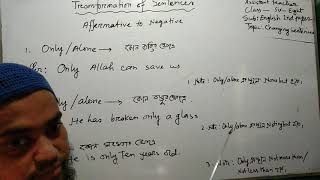 Transformation of Sentences
Affermative to Negative
Assistant teacher
Class — Six - Eight
Sub: English 2nd paper
Topic: Changing Sentences
1. Only/Alone → কোন ব্যক্তি হলে
Only Allah can save us
Note: Only/alone None but
/alone →
He has broken only a glass
2. Note: Only/alone Nothing but
He is only Ten years old.
3. Note: Only Not more than/
Not less than